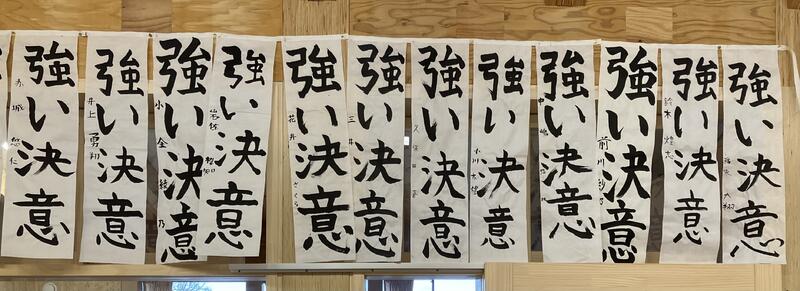 強い決意
赤城 悠仁
強い決意
井上 勇翔
強い決意
小金 綾乃
強い決意
強い決意
花井 さくら
強い決意
三井
強い決意
強い決意
小川
強い決意
中嶋
強い決意
前川 紗
強い決意
鈴木
強い決意